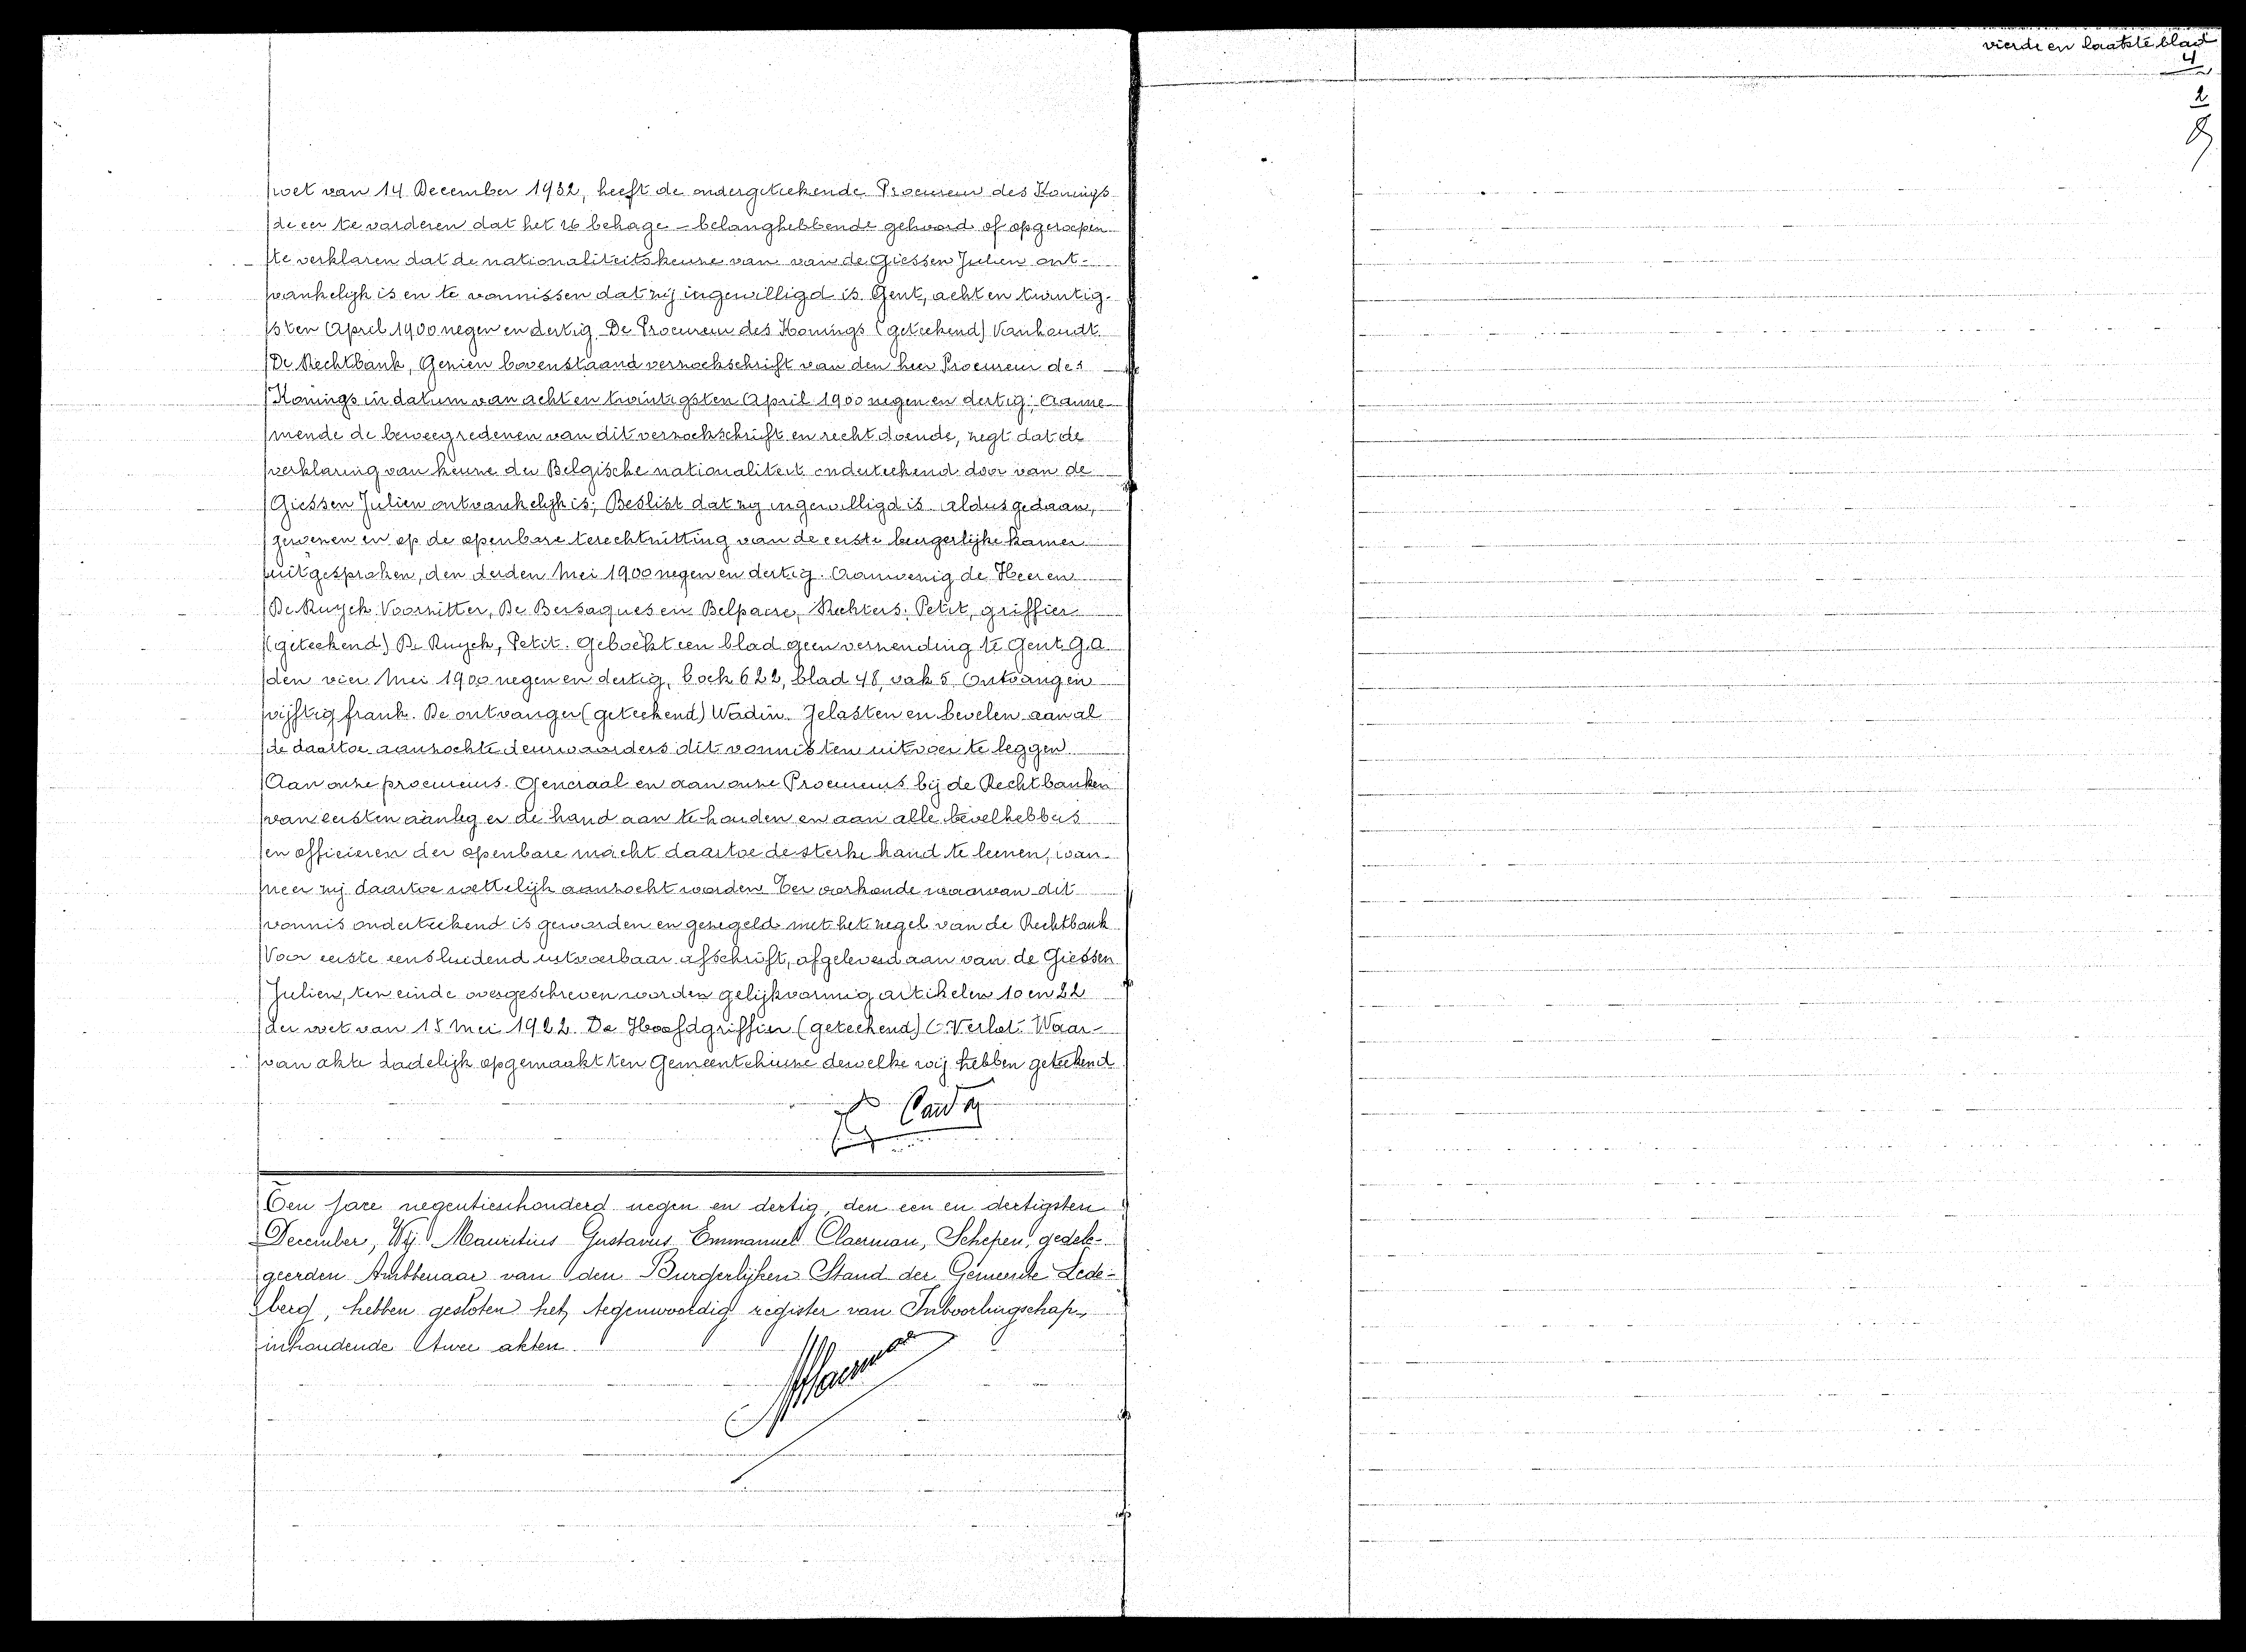 wet van 14 December 1932, heeft de ondergeteekende Procureur des Konings
de eer te vorderen dat het U behage - belanghebbende gehoord of opgeroepen
te verklaren dat de nationaliteitskeuze van van de Giessen Julien ont-
vankelijk is en te vonnissen dat zij ingewilligd is. Gent, acht en twintig-
sten April 1900 negen en dertig. De Procureur des Konings (geteekend) Vanhoudt.
De Rechtbank, Gezien bovenstaand verzoekschrift van den heer Procureur des
Konings in datum van acht en twintigsten April 1900 negen en dertig; Aanne-
mende de beweegredenen van dit verzoekschrift en recht doende, zegt dat de
verklaring van keuze der Belgische nationaliteit onderteekend door van de
Giessen Julien ontvankelijk is; Beslist dat zij ingewilligd is. Aldus gedaan,
gewezen en op de openbare terechtzitting van de eerste burgerlijke kamer
uitgesproken, den derden Mei 1900 negen en dertig. Aanwezig de Heeren
De Ruyck Voorzitter, De Bersaques en Belpaire, Rechters; Petit, griffier
(geteekend) De Ruyck, Petit. Geboekt een blad geen verzending te Gent G.A.
den vier Mei 1900 negen en dertig, boek 622, blad 48, vak 5. Ontvangen
vijftig frank. De ontvanger (geteekend) Wadin. Gelasten en bevelen aan al
de daartoe aanzochte deurwaarders dit vonnis ten uitvoer te leggen
Aan onze procureurs-Generaal en aan onze Procureurs bij de Rechtbanken
van eersten aanleg er de hand aan te houden en aan alle bevelhebbers
en officieren der openbare macht daartoe de sterke hand te leenen, wan-
neer zij daartoe wettelijk aanzocht worden. Ter oorkonde waarvan dit
vonnis onderteekend is geworden en gezegeld met het zegel van de Rechtbank
Voor eerste eensluidend uitvoerbaar afschrift, afgeleverd aan van de Giessen
Julien, ten einde overgeschreven worden gelijkvormig artikelen 10 en 22
der wet van 15 Mei 1922. De Hoofdgriffier (geteekend) C. Verlot. Waar-
van akte dadelijk opgemaakt ten Gemeentehuize dewelke wij hebben geteekend
Ten jare negentienhonderd negen en dertig, den een en dertigsten
December, Wij Mauritius Gustavus Emmanuel Claerman, Schepen, gedele-
geerden Ambtenaar van den Burgerlijken Stand der Gemeente Lede-
berg, hebben gesloten het tegenwoordig register van Inboorlingschap,
inhoudende twee akten.
vierde en laatste blad
4
2